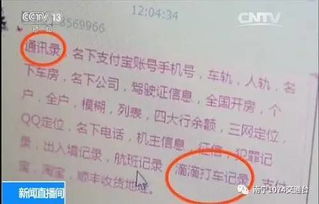 CCTV 13
CNTV
12:04:34
8569966
通讯录，名下支付宝账号手机号，车轨，人轨，名
下车房，名下公司，驾驶证信息，全国开房，个
户，全户，模糊，列表，四大行余额，三网定位，
QQ定位，名下电话，机主信息，征信，犯罪记
录，出入境记录，航班记录，滴滴打车记录，支付
宝，淘宝，顺丰收货地址。
新闻直播间
南宁1074交通台